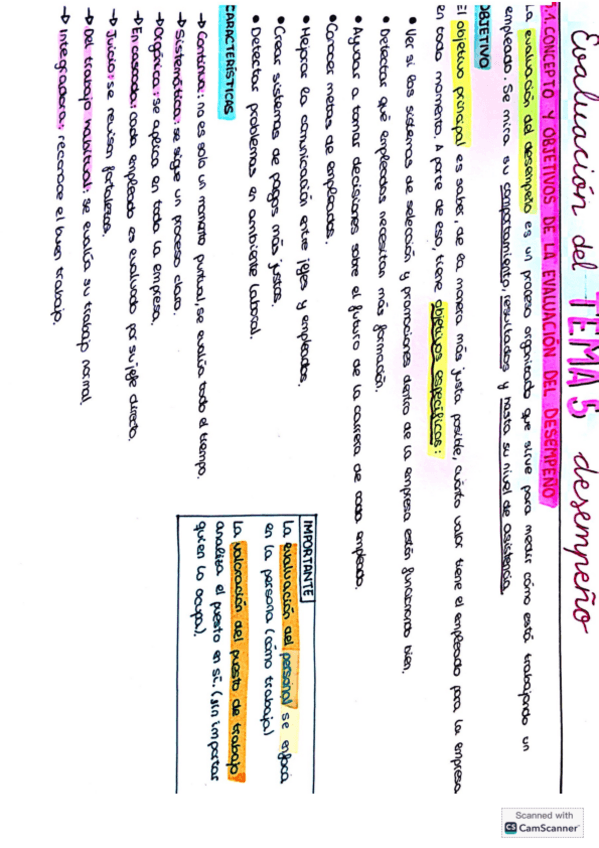 TEMA 5
Evaluación del desempeño
5.1. CONCEPTO Y OBJETIVOS DE LA EVALUACIÓN DEL DESEMPEÑO
La evaluación del desempeño es un proceso organizado que sirve para medir cómo está trabajando un
empleado. Se mira su comportamiento, resultados y hasta su nivel de asistencia.
OBJETIVO
El objetivo principal es saber, de la manera más justa posible, cuánto valor tiene el empleado para la empresa
en todo momento. A parte de eso, tiene objetivos específicos:
• Ver si los sistemas de selección y promociones dentro de la empresa están funcionando bien.
• Detectar qué empleados necesitan más formación.
• Ayudar a tomar decisiones sobre el futuro de la carrera de cada empleado.
• Conocer metas de empleados.
• Mejorar la comunicación entre jefes y empleados.
• Crear sistemas de pagos más justos.
• Detectar problemas en ambiente laboral.
CARACTERÍSTICAS
→ Continua: no es solo un momento puntual, se evalúa todo el tiempo.
→ Sistemática: se sigue un proceso claro.
→ Orgánica: se aplica en toda la empresa.
→ En cascada: cada empleado es evaluado por su jefe directo.
→ Juicio: se revisan fortalezas.
→ Del trabajo habitual: se evalúa su trabajo normal.
→ Integradora: reconoce el buen trabajo.
IMPORTANTE
La evaluación del personal se enfoca
en la persona (cómo trabaja)
La valoración del puesto de trabajo
analiza el puesto en sí. (sin importar
quien lo ocupa).
Scanned with
CS CamScanner